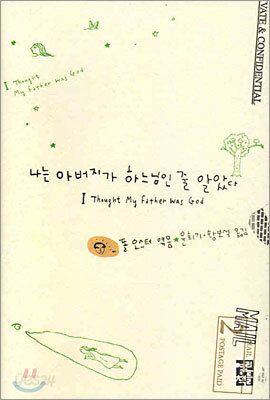 VATE & CONFIDENTIAL
I Thought
My Father Was God
나는 아버지가 하느님인 줄 알았다
I Thought My Father Was God
폴 오스터 엮음 * 윤희기·황보석 옮김
MAIL
2
POSTAGE PAID
yes24